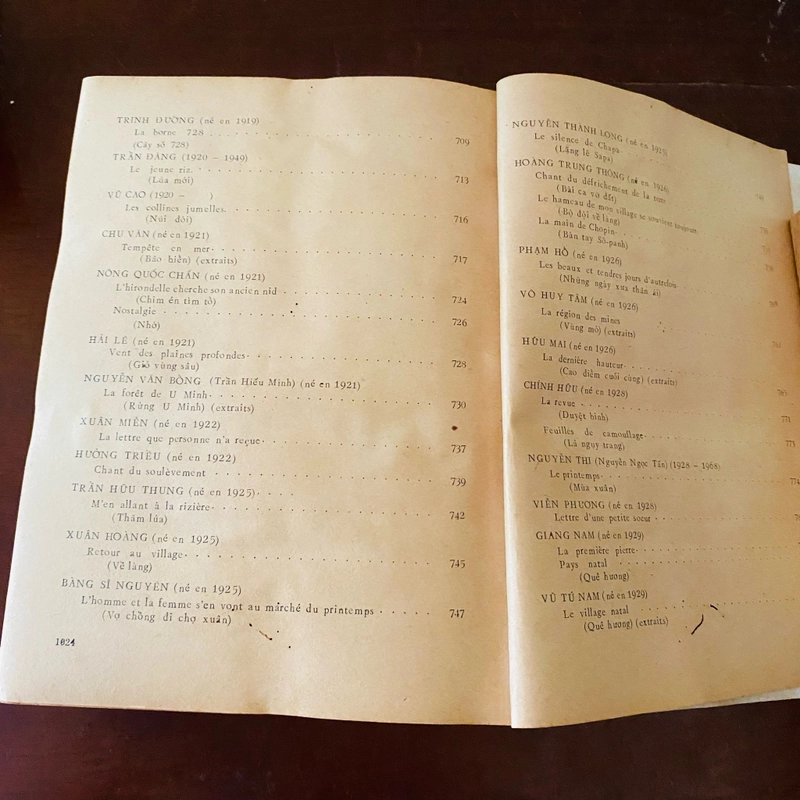 TRINH ĐƯỜNG (né en 1919)
La borne 728 . . . . . 709
(Cây số 728)
TRẦN ĐĂNG (1920 – 1949)
Le jeune riz. . . . . 713
(Lúa mới)
VŨ CAO (1920 – )
Les collines jumelles. . . . . 716
(Núi đôi)
CHU VĂN (né en 1921)
Tempête en mer . . . . . 717
(Bão biển) (extraits)
NÔNG QUỐC CHẤN (né en 1921)
L'hirondelle cherche son ancien nid . . . . . 724
(Chim én tìm tổ)
Nostalgie . . . . . 726
(Nhớ)
HẢI LÊ (né en 1921)
Vent des plaines profondes . . . . . 728
(Gió vùng sâu)
NGUYỄN VĂN BỔNG (Trần Hiếu Minh) (né en 1921)
La forêt de U Minh . . . . . 730
(Rừng U Minh) (extraits)
XUÂN MIỄN (né en 1922)
La lettre que personne n'a reçue . . . . . 737
HƯỞNG TRIỀU (né en 1922)
Chant du soulèvement . . . . . 739
TRẦN HỮU THUNG (né en 1925) . . . .
M'en allant à la rizière . . . . . 742
(Thăm lúa)
XUÂN HOÀNG (né en 1925)
Retour au village . . . . . 745
(Về làng)
BÀNG SĨ NGUYÊN (né en 1925)
L'homme et la femme s'en vont au marché du printemps . . . . . 747
(Vợ chồng đi chợ xuân)
1024
NGUYỄN THÀNH LONG (né en 1925)
Le silence de Chapa . . . . .
(Lặng lẽ Sapa)
HOÀNG TRUNG THÔNG (né en 1926)
Chant du défrichement de la terre
(Bài ca vỡ đất)
Le hameau de mon village se souvient toujours
(Bộ đội về làng)
La main de Chopin . . . . .
(Bàn tay Sô-panh)
PHẠM HỔ (né en 1926)
Les beaux et tendres jours d'autrefois
(Những ngày xưa thân ái)
VÕ HUY TÂM (né en 1926)
La région des mines
(Vùng mỏ) (extraits)
HỮU MAI (né en 1926)
La dernière hauteur . . . . .
(Cao điểm cuối cùng) (extraits)
CHÍNH HỮU (né en 1928)
La revue . . . . . 771
(Duyệt binh)
Feuilles de camouflage . . . . . 773
(Lá ngụy trang)
NGUYỄN THI (Nguyễn Ngọc Tấn) (1928 – 1968)
Le printemps . . . . . 774
(Mùa xuân)
VIỄN PHƯƠNG (né en 1928)
Lettre d'une petite soeur . . . . .
GIANG NAM (né en 1929)
La première pierre . . . . .
Pays natal . . . . .
(Quê hương)
VŨ TÚ NAM (né en 1929)
Le village natal . . . . .
(Quê hương) (extraits)